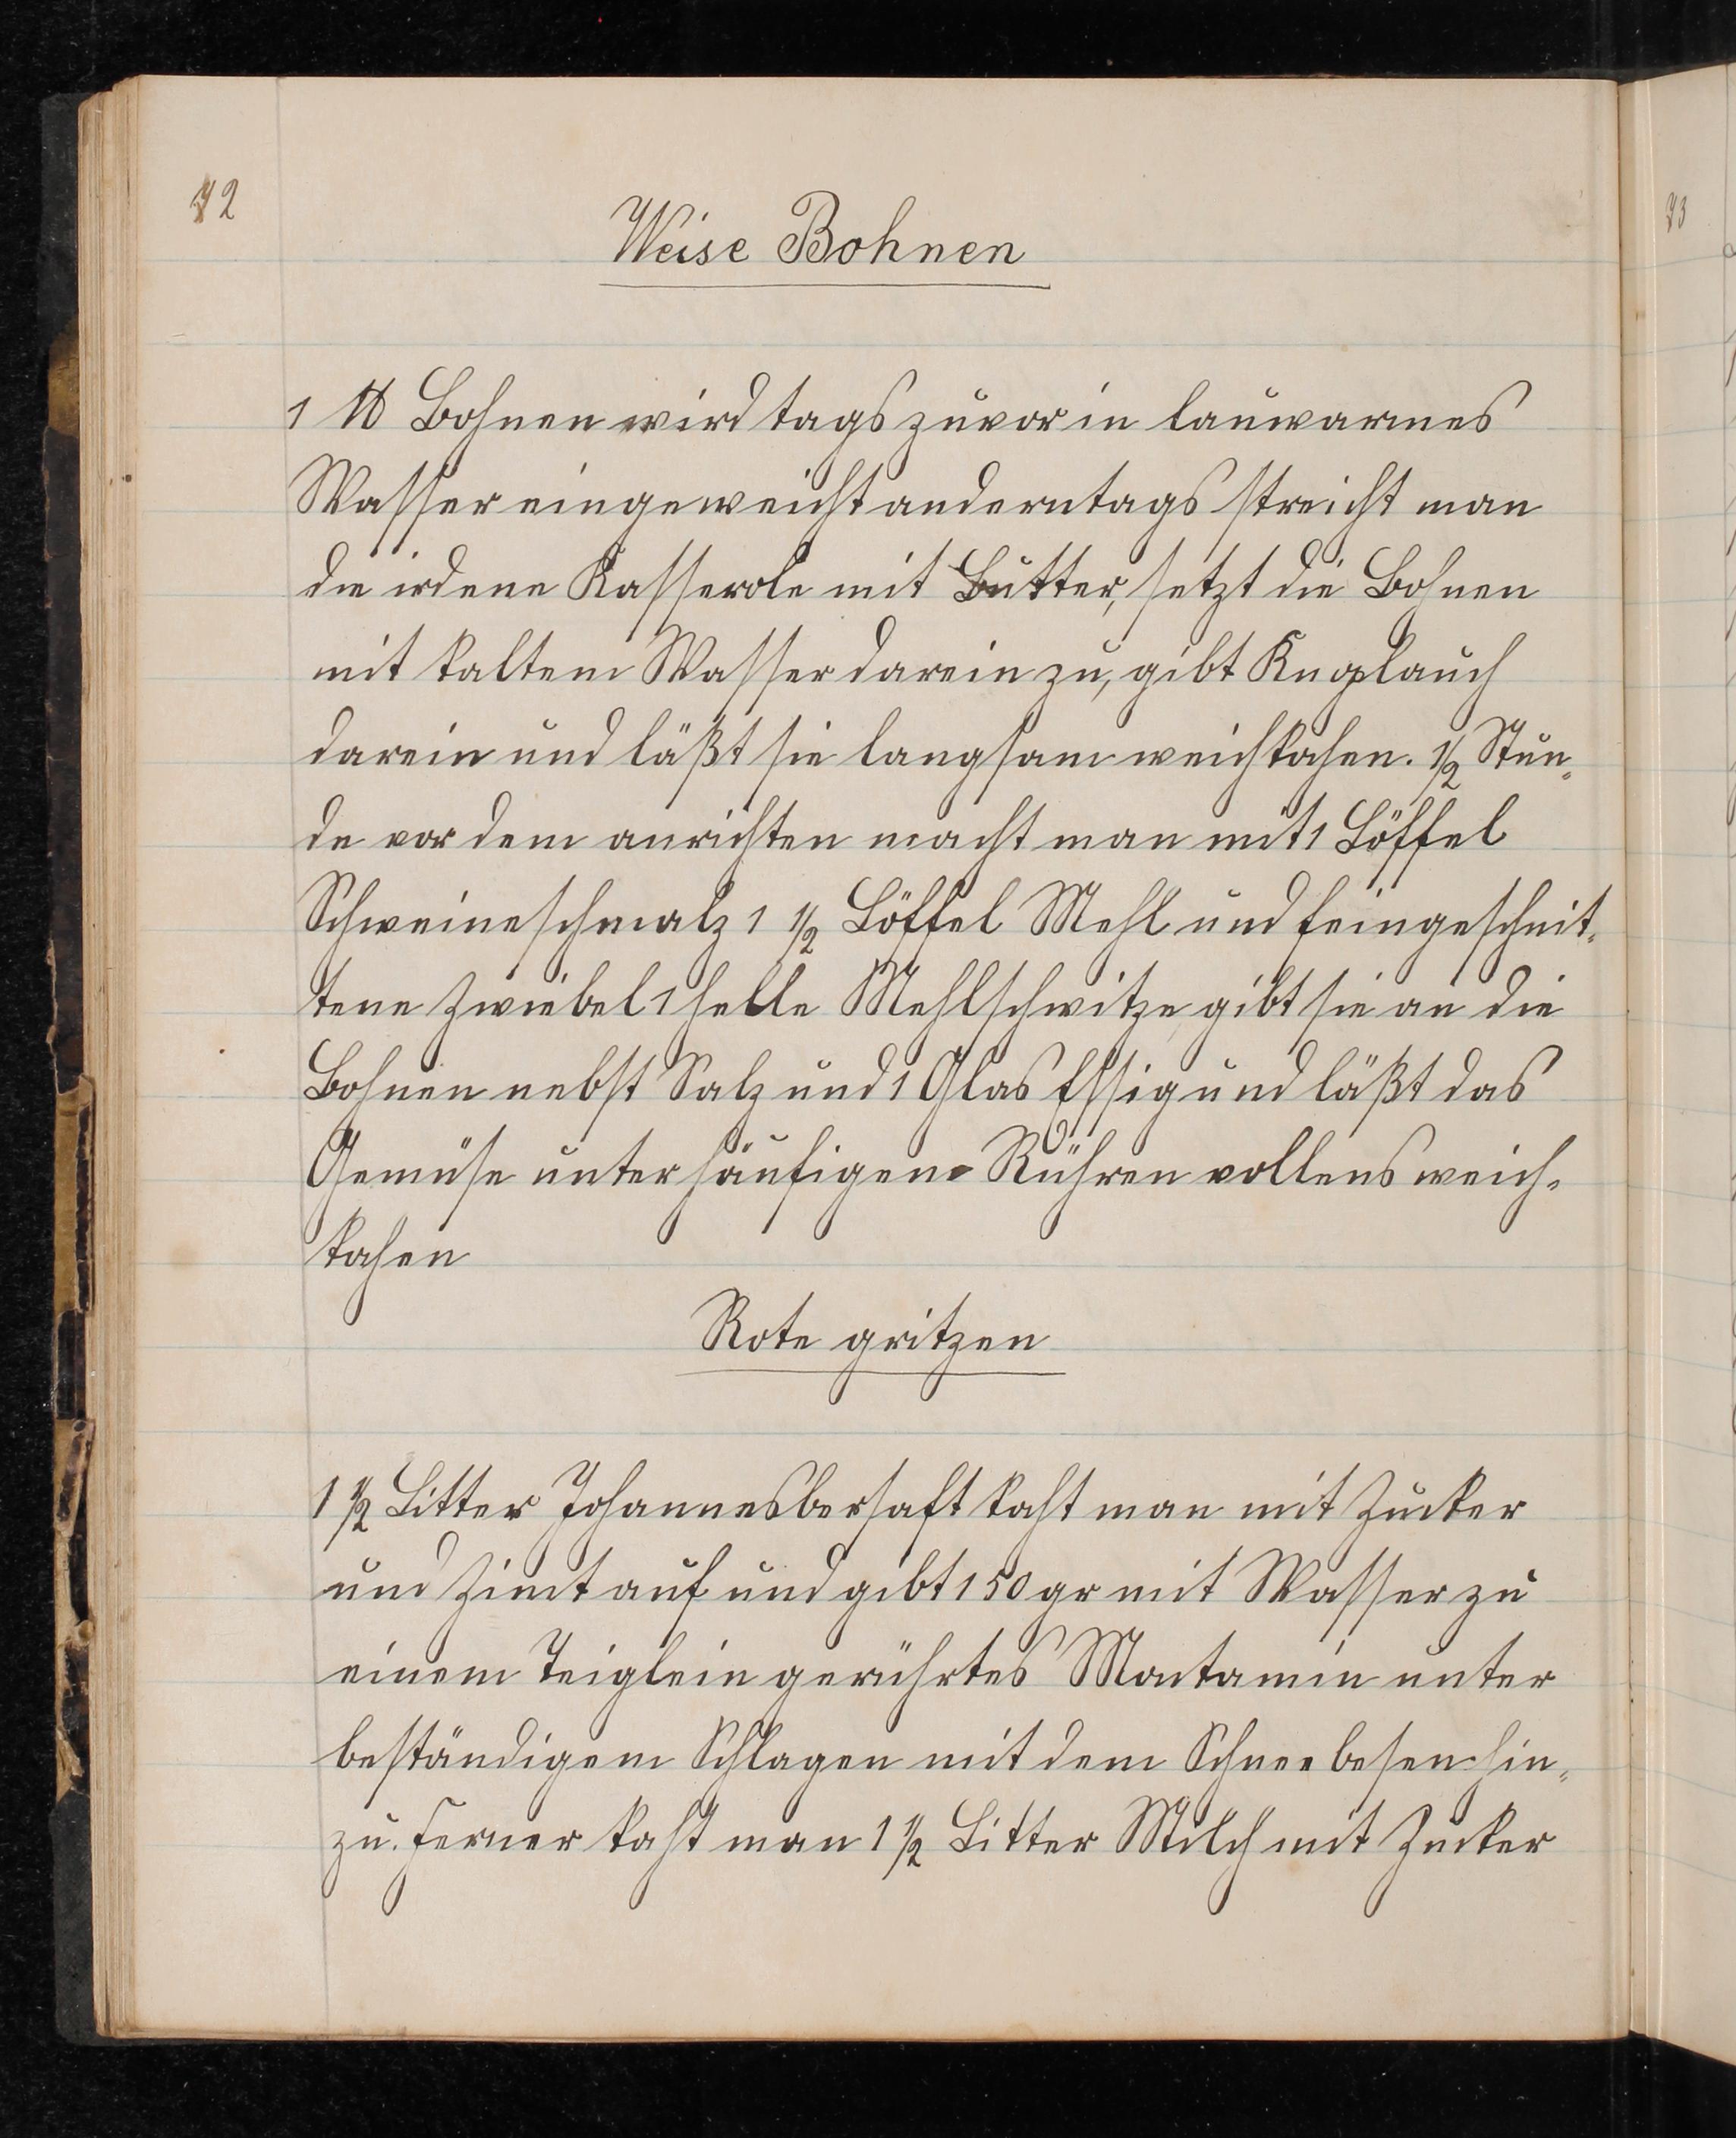 72
Weise Bohnen
1 ℔ Bohnen wird tags zuvor in lauwarmes
Wasser eingeweicht anderntags streicht man
die irdene Kasserole mit Butter, setzt die Bohnen
mit kaltem Wasser darein zu, gibt Knoplauch
darein und läßt sie langsam weichkochen. ½ Stun„
de vor dem anrichten macht man mit 1 Löffel
Schweineschmalz 1 ½ Löffel Mehl und feingeschnit„
tene Zwiebel 1 helle Mehlschwitze gibt sie an die
Bohnen nebst Salz und 1 Glas Essig und läßt das
Gemüse unter häufigem Rühren vollens weich„
kochen
Rote gritzen
1 ½ Litter Johannesbersaft kocht man mit Zucker
und Zimt auf und gibt 150 gr mit Wasser zu
einem Teiglein gerührtes Montamin unter
beständigem Schlagen mit dem Schneebesen hin„
zu. Ferner kocht man 1 ½ Litter Milch mit Zucker
73